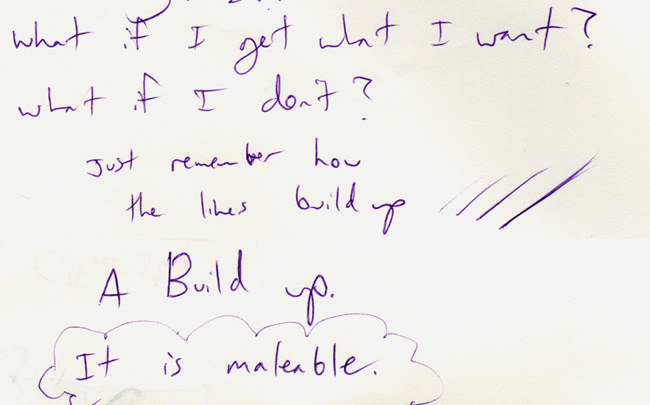 what if I get what I want?
what if I don't?
just remember how
the lines build up
A Build up.
It is maleable.